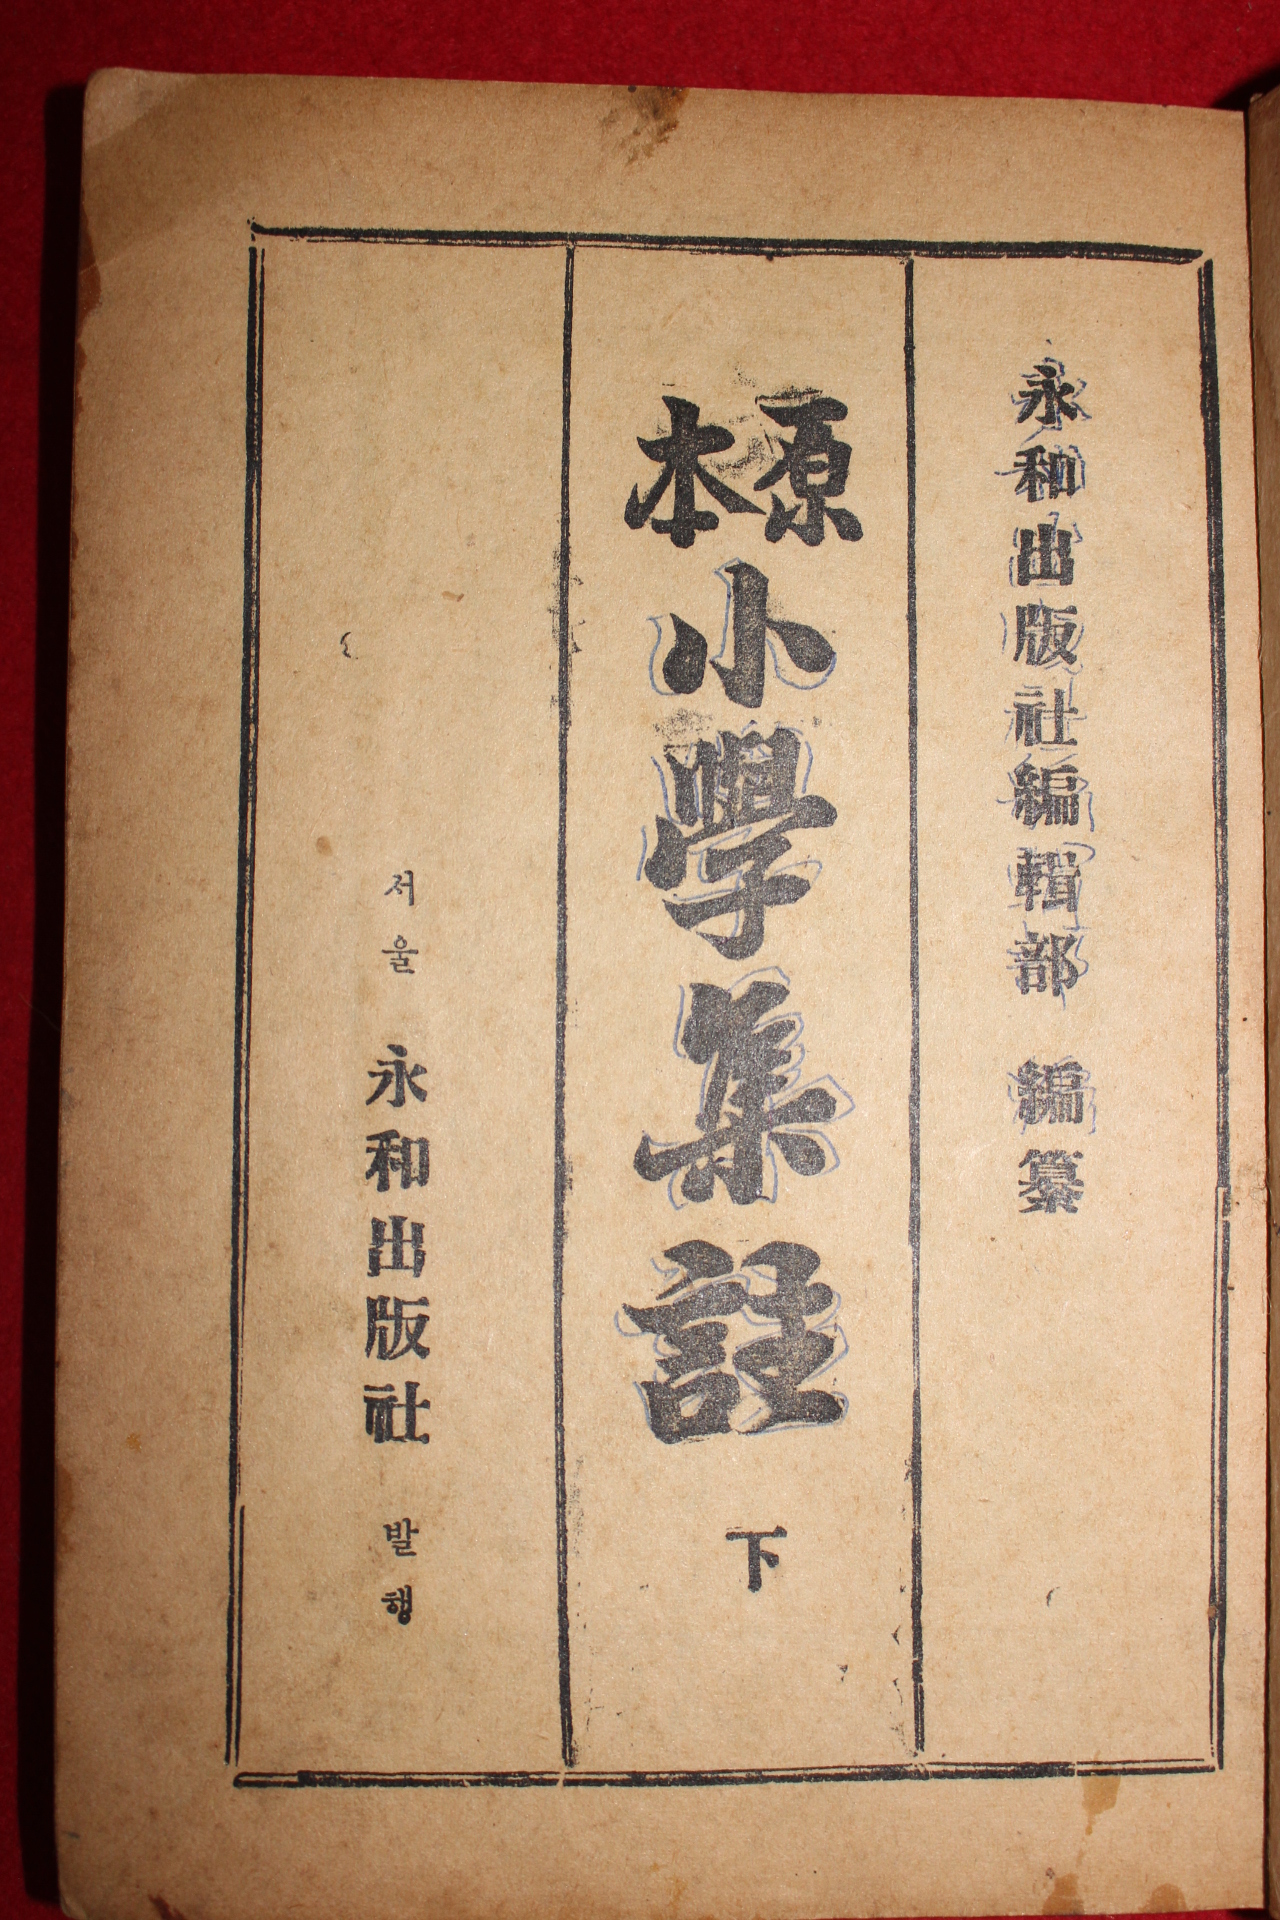 永和出版社編輯部 編纂
原本 小學集註 下
서울 永和出版社 발행